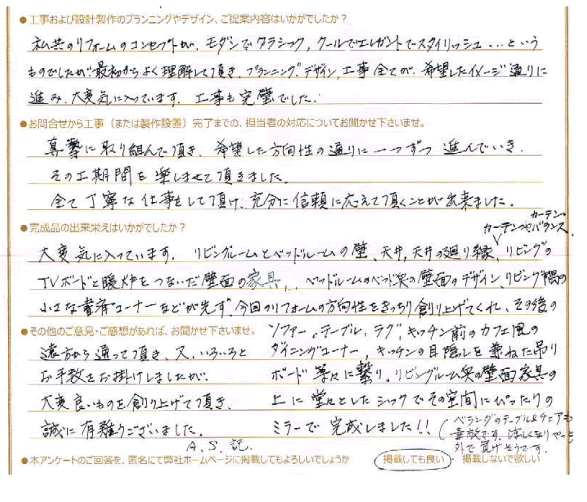 ●工事および設計製作のプランニングやデザイン、ご提案内容はいかがでしたか？
私共のリフォームのコンセプトが、モダンでクラシック、クールでエレガントでスタイリッシュ…という
ものでしたが最初からよく理解して頂き、プランニング、デザイン、工事全てが、希望したイメージ通りに
進み、大変気に入っています。工事も完璧でした。
●お問合せから工事（または製作設置）完了までの、担当者の対応についてお聞かせ下さいませ。
真摯に取り組んで頂き、希望した方向性の通りに一つずつ進んでいき、
その工期間を楽しませて頂きました。
全て丁寧な仕事をして頂け、充分に信頼に応えて頂くことが出来ました。
●完成品の出来栄えはいかがでしたか？
カーテンの
カーテンやバランス、
大変気に入っています。リビングルームとベッドルームの壁、天井、天井の廻り縁、リビングの
TVボードと暖炉をつないだ壁面の家具、、ベッドルームのベッド奥の壁面のデザイン、リビング隅の
小さな書斎コーナーなどが先ず、今回のリフォームの方向性をきっちり創り上げてくれ、その後の
●その他のご意見・ご感想があれば、お聞かせ下さいませ。
ソファー、テーブル、ラグ、キッチン前のカフェ風の
遠方から通って頂き、又、いろいろと
ダイニングコーナー、キッチンの目隠しを兼ねた吊り
お手数をお掛けしましたが、
ボード等々に繋り、リビングルーム奥の壁面家具の
大変良いものを創り上げて頂き、
上に堂々としたシックでその空間にぴったりの
誠に有難うございました。
ミラーで完成しました！！
（ベランダのテーブル&チェアも
素敵です。涼しくなりやっと
外で寛げそうです。
A.S.記
●本アンケートのご回答を、匿名にて弊社ホームページに掲載してもよろしいでしょうか
掲載しても良い・掲載しないで欲しい